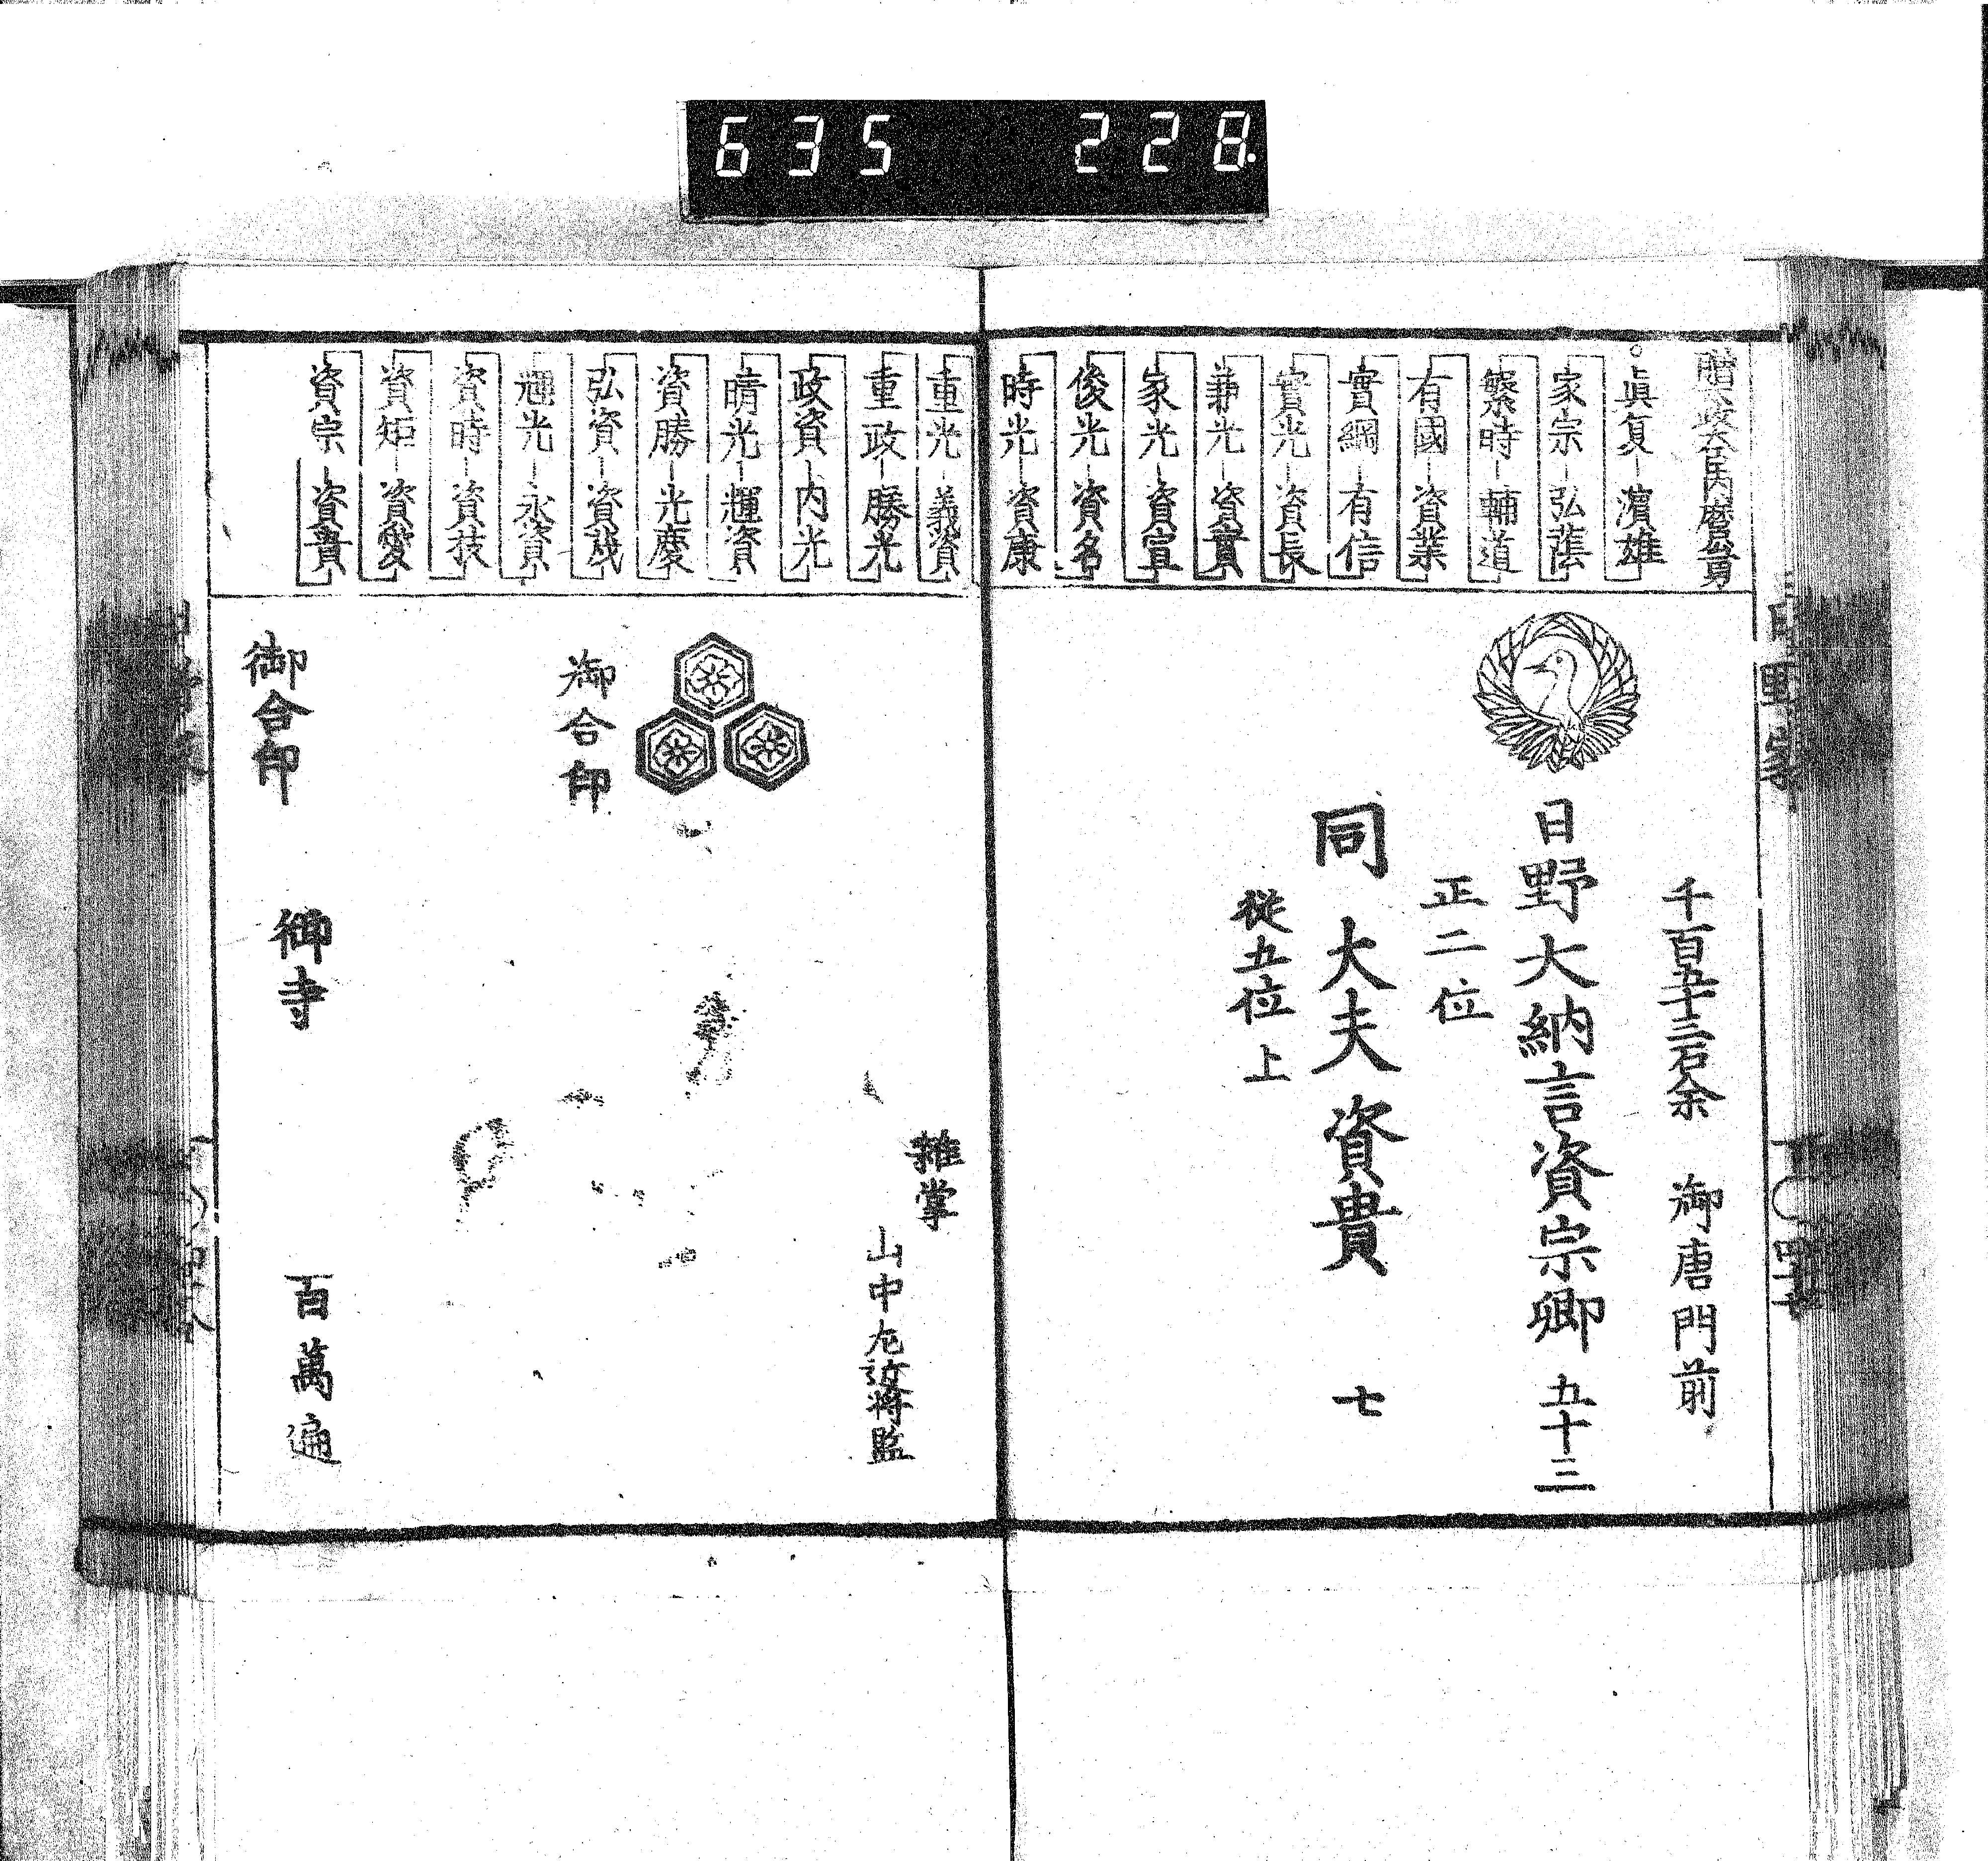 635 228.
贈太政大臣内麿公男
眞夏 濱雄
家宗 弘蔭
繁時 輔道
有國 資業
實綱 有信
實光 資長
兼光 資實
家光 資宣
俊光 資名
時光 資康
千百五十三石余 御唐門前
日野大納言資宗卿 五十三
正二位
同 大夫 資貴 七
從五位上
重光 義資
重政 勝光
政資 内光
晴光 輝資
資勝 光慶
弘資 資茂
輝光 永資
資時 資枝
資矩 資愛
資宗 資貴
雜掌
山中左近将監
御合印
御合印 御寺 百萬遍